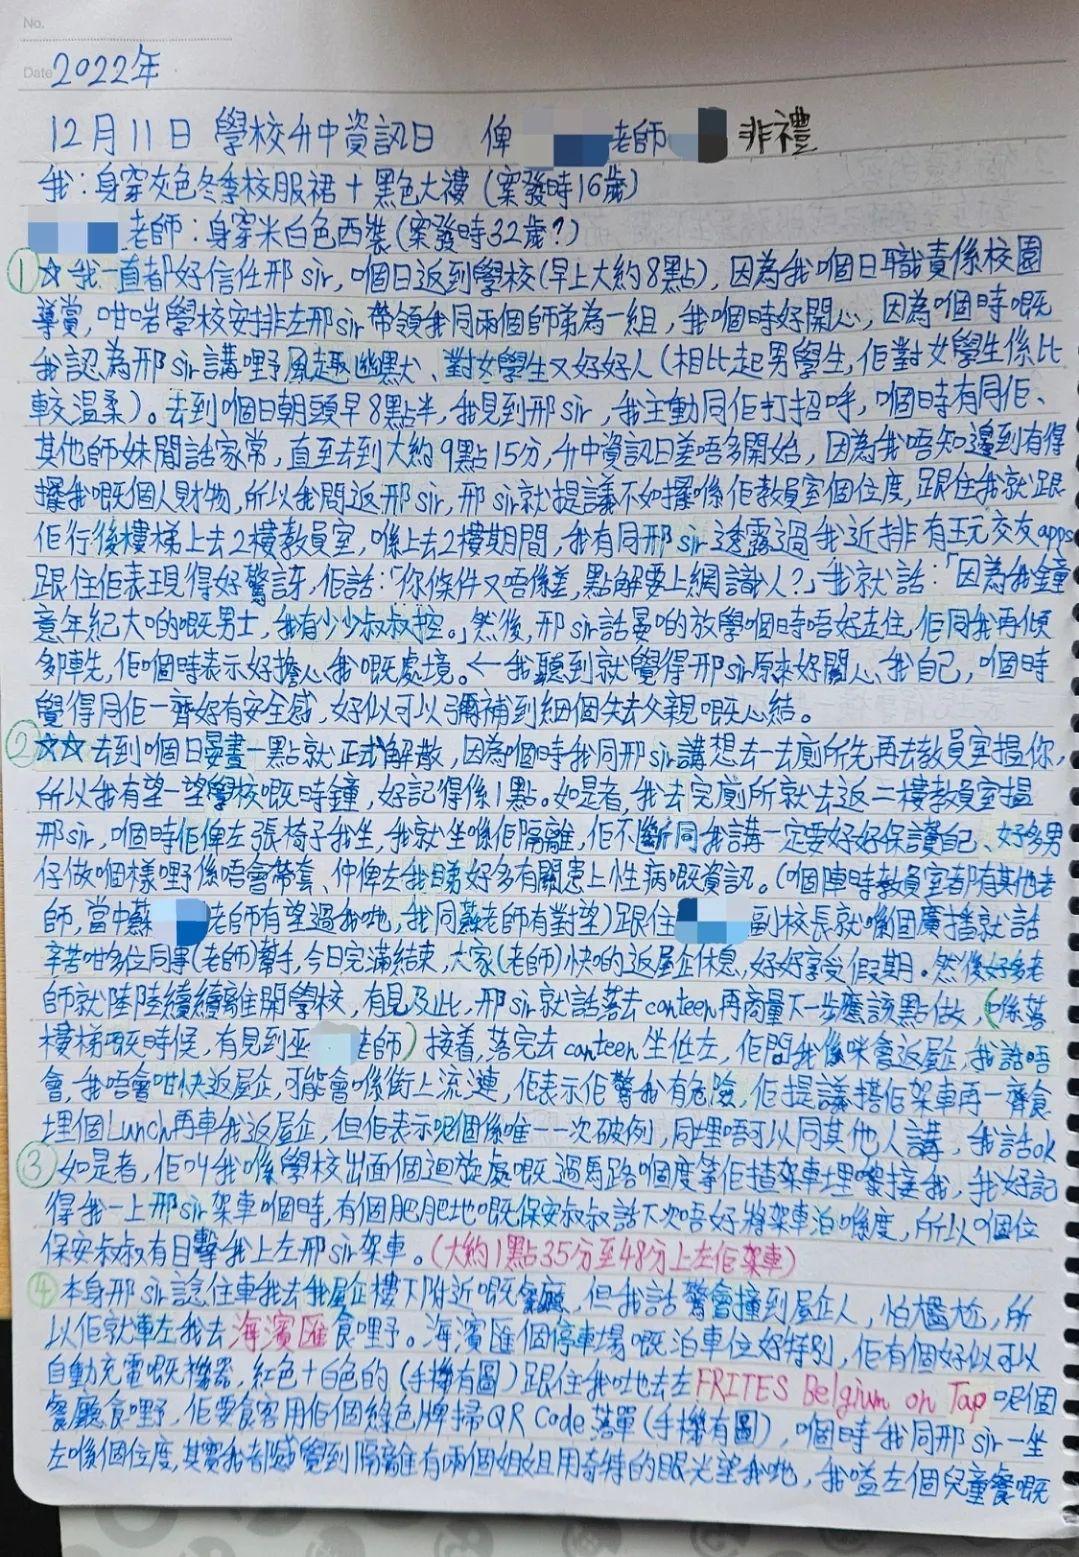 No.
Date 2022年
12月11日 學校升中資訊日 俾 老師 非禮
我：身穿灰色冬季校服裙＋黑色大褸（案發時16歲）
老師：身穿米白色西裝（案發時32歲？）
① ☆我一直都好信任邢sir，嗰日返到學校（早上大約8點），因為我嗰日職責係校園
導賞，咁啱學校安排左邢sir帶領我同兩個師弟為一組，我嗰時好開心，因為嗰時嘅
我認為邢sir講嘢風趣幽默、對女學生又好好人（相比起男學生，佢對女學生係比
較溫柔）。去到嗰日朝頭早8點半，我見到邢sir，我主動同佢打招呼，嗰時有同佢、
其他師妹閒話家常，直至去到大約9點15分，升中資訊日差唔多開始，因為我唔知邊到有得
擺我嘅個人財物，所以我問返邢sir，邢sir就提議不如擺喺佢教員室個位度，跟住我就跟
佢行後樓梯上去2樓教員室，喺上去2樓期間，我有同邢sir透露過我近排有玩交友apps
跟住佢表現得好驚訝，佢話：「你條件又唔係差，點解要上網識人？」我就話：「因為我鐘
意年紀大啲嘅男士，我有少少叔叔控。」然後，邢sir話晏啲放學嗰時唔好走住，佢同我再傾
多陣先，佢嗰時表示好擔心我嘅處境。←我聽到就覺得邢sir原來好關心我自己，嗰時
覺得同佢一齊好有安全感，好似可以彌補到細個失去父親嘅心結。
② ☆☆去到嗰日晏晝一點就正式解散，因為嗰時我同邢sir講想去一去廁所先再去教員室搵你，
所以我有望一望學校嘅時鐘，好記得係1點。如是者，我去完廁所就去返二樓教員室搵
邢sir，嗰時佢俾左張椅子我坐，我就坐喺佢隔離，佢不斷同我講一定要好好保護自己、好多男
仔做嗰樣嘢係唔會帶套、仲俾左我睇好多有關患上性病嘅資訊。（嗰陣時教員室都有其他老
師，當中蘇 老師有望過我哋，我同蘇老師有對望）跟住 副校長就喺個廣播就話
辛苦咁多位同事（老師）幫手，今日完滿結束，大家（老師）快啲返屋企休息，好好享受假期。然後好多老
師就陸陸續續離開學校，有見及此，邢sir就話落去canteen再商量下一步應該點做，（喺落
樓梯嘅時候，有見到巫 老師）接着，落完去canteen坐低左，佢問我係咪會返屋企，我話唔
會，我唔會咁快返屋企，可能會喺街上流連，佢表示佢驚我有危險，佢提議搭佢架車再一齊食
埋個Lunch再車我返屋企，但佢表示呢個係唯一一次破例，同埋唔可以同其他人講，我話ok
③ 如是者，佢叫我喺學校出面個迴旋處嘅過馬路嗰度等佢揸架車埋嚟接我，我好記
得我一上邢sir架車嗰時，有個肥肥地嘅保安叔叔話下次唔好將架車泊喺度，所以嗰位
保安叔叔有目擊我上左邢sir架車。（大約1點35分至48分上左佢架車）
④ 本身邢sir諗住車我去我屋企樓下附近嘅餐廳，但我話驚會撞到屋企人，怕尷尬，所
以佢就車左我去海濱匯食嘢。海濱匯個停車場嘅泊車位好特別，佢有個好似可以
自動充電嘅機器，紅色＋白色的（手機有圖）跟住我哋去左FRITES Belgium on Tap呢個
餐廳食嘢，佢要食客用佢個綠色牌掃QR Code落單（手機有圖），嗰時我同邢sir一坐
左喺個位度，其實我都感覺到隔離有兩個姐姐用奇特的眼光望我哋，我嗌左個兒童餐嘅